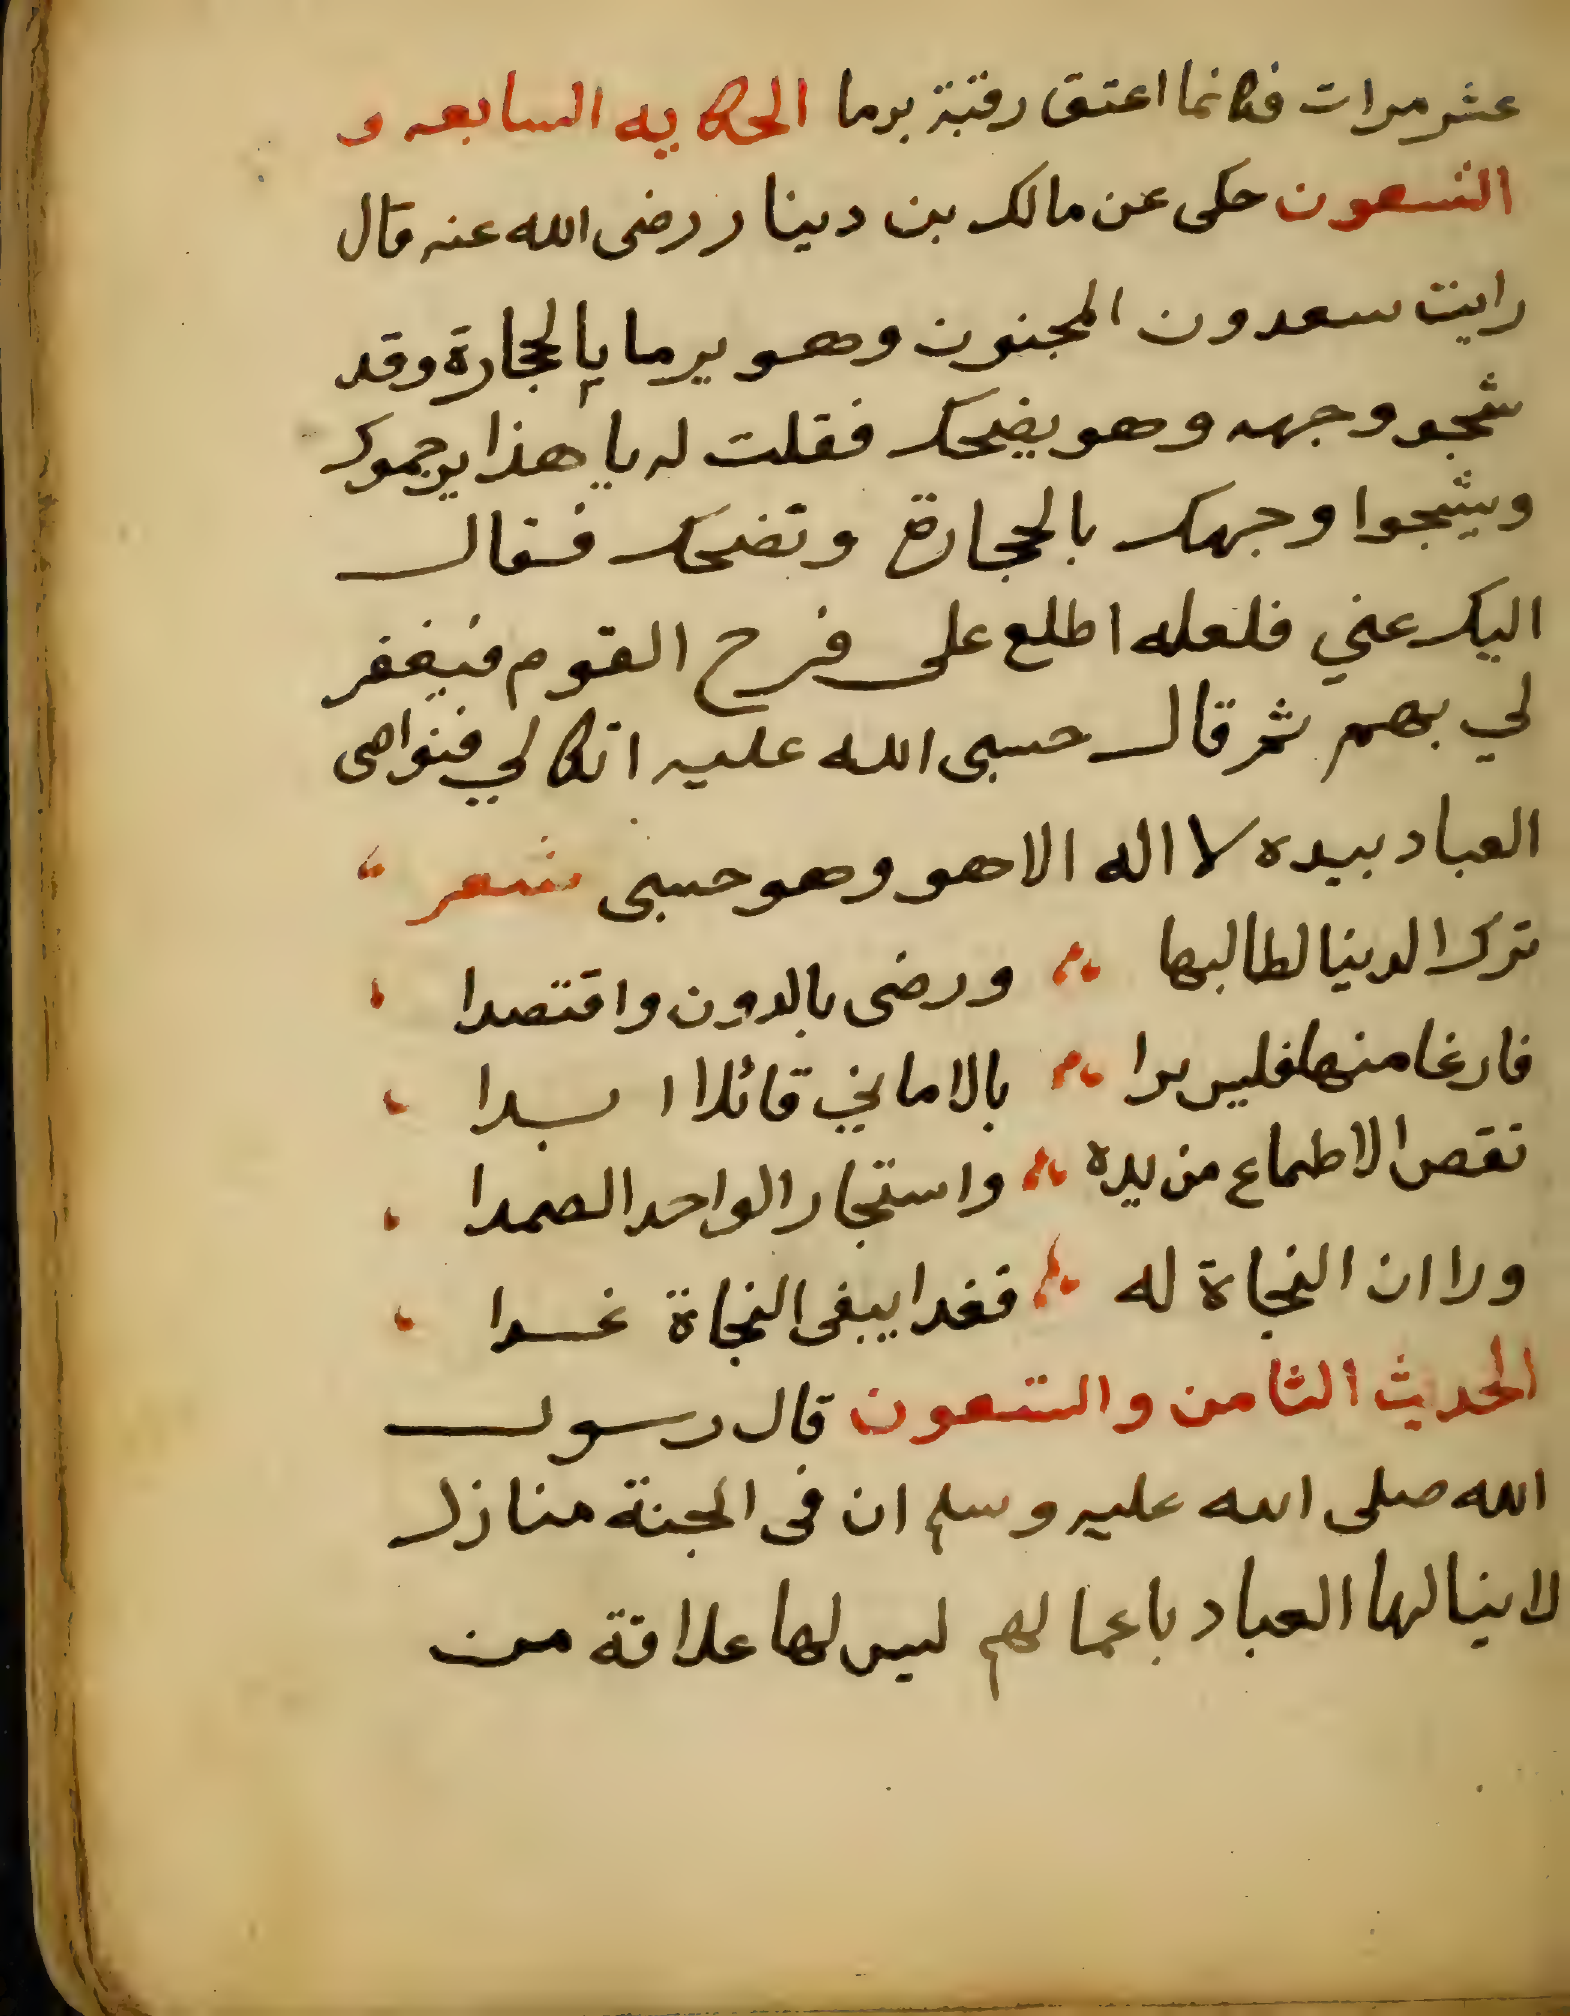 عشر مرات فكانما اعتق رقبة يرما الحكايه السابعه و
التسعون حكى عن مالك بن دينار رضى الله عنه قال
رايت سعدون المجنون وهو يرما بالحجارة وقد
شجو وجهه وهو يضحك فقلت له يا هذا يرجموك
ويشجوا وجهك بالحجارة وتضحك فقال
اليك عني فلعله اطلع على فرح القوم فيغفر
لي بهم ثم قال حسبى الله عليه اتكالي فنواصى
العباد بيده لا اله الا هو وهو حسبى شعر
ترك الدنيا لطالبها ورضى بالدون واقتصدا
فارغا منها فليس يرا بالاماني قائلا ابدا
نقص الاطماع من يده واستجار الواحد الصمدا
ورا ان النجاة له فغدا يبغى النجاة غدا
الحديث الثامن والتسعون قال رسول
الله صلى الله عليه وسلم ان فى الجنة منازل
لا ينالها العباد باعمالهم ليس لها علاقة من